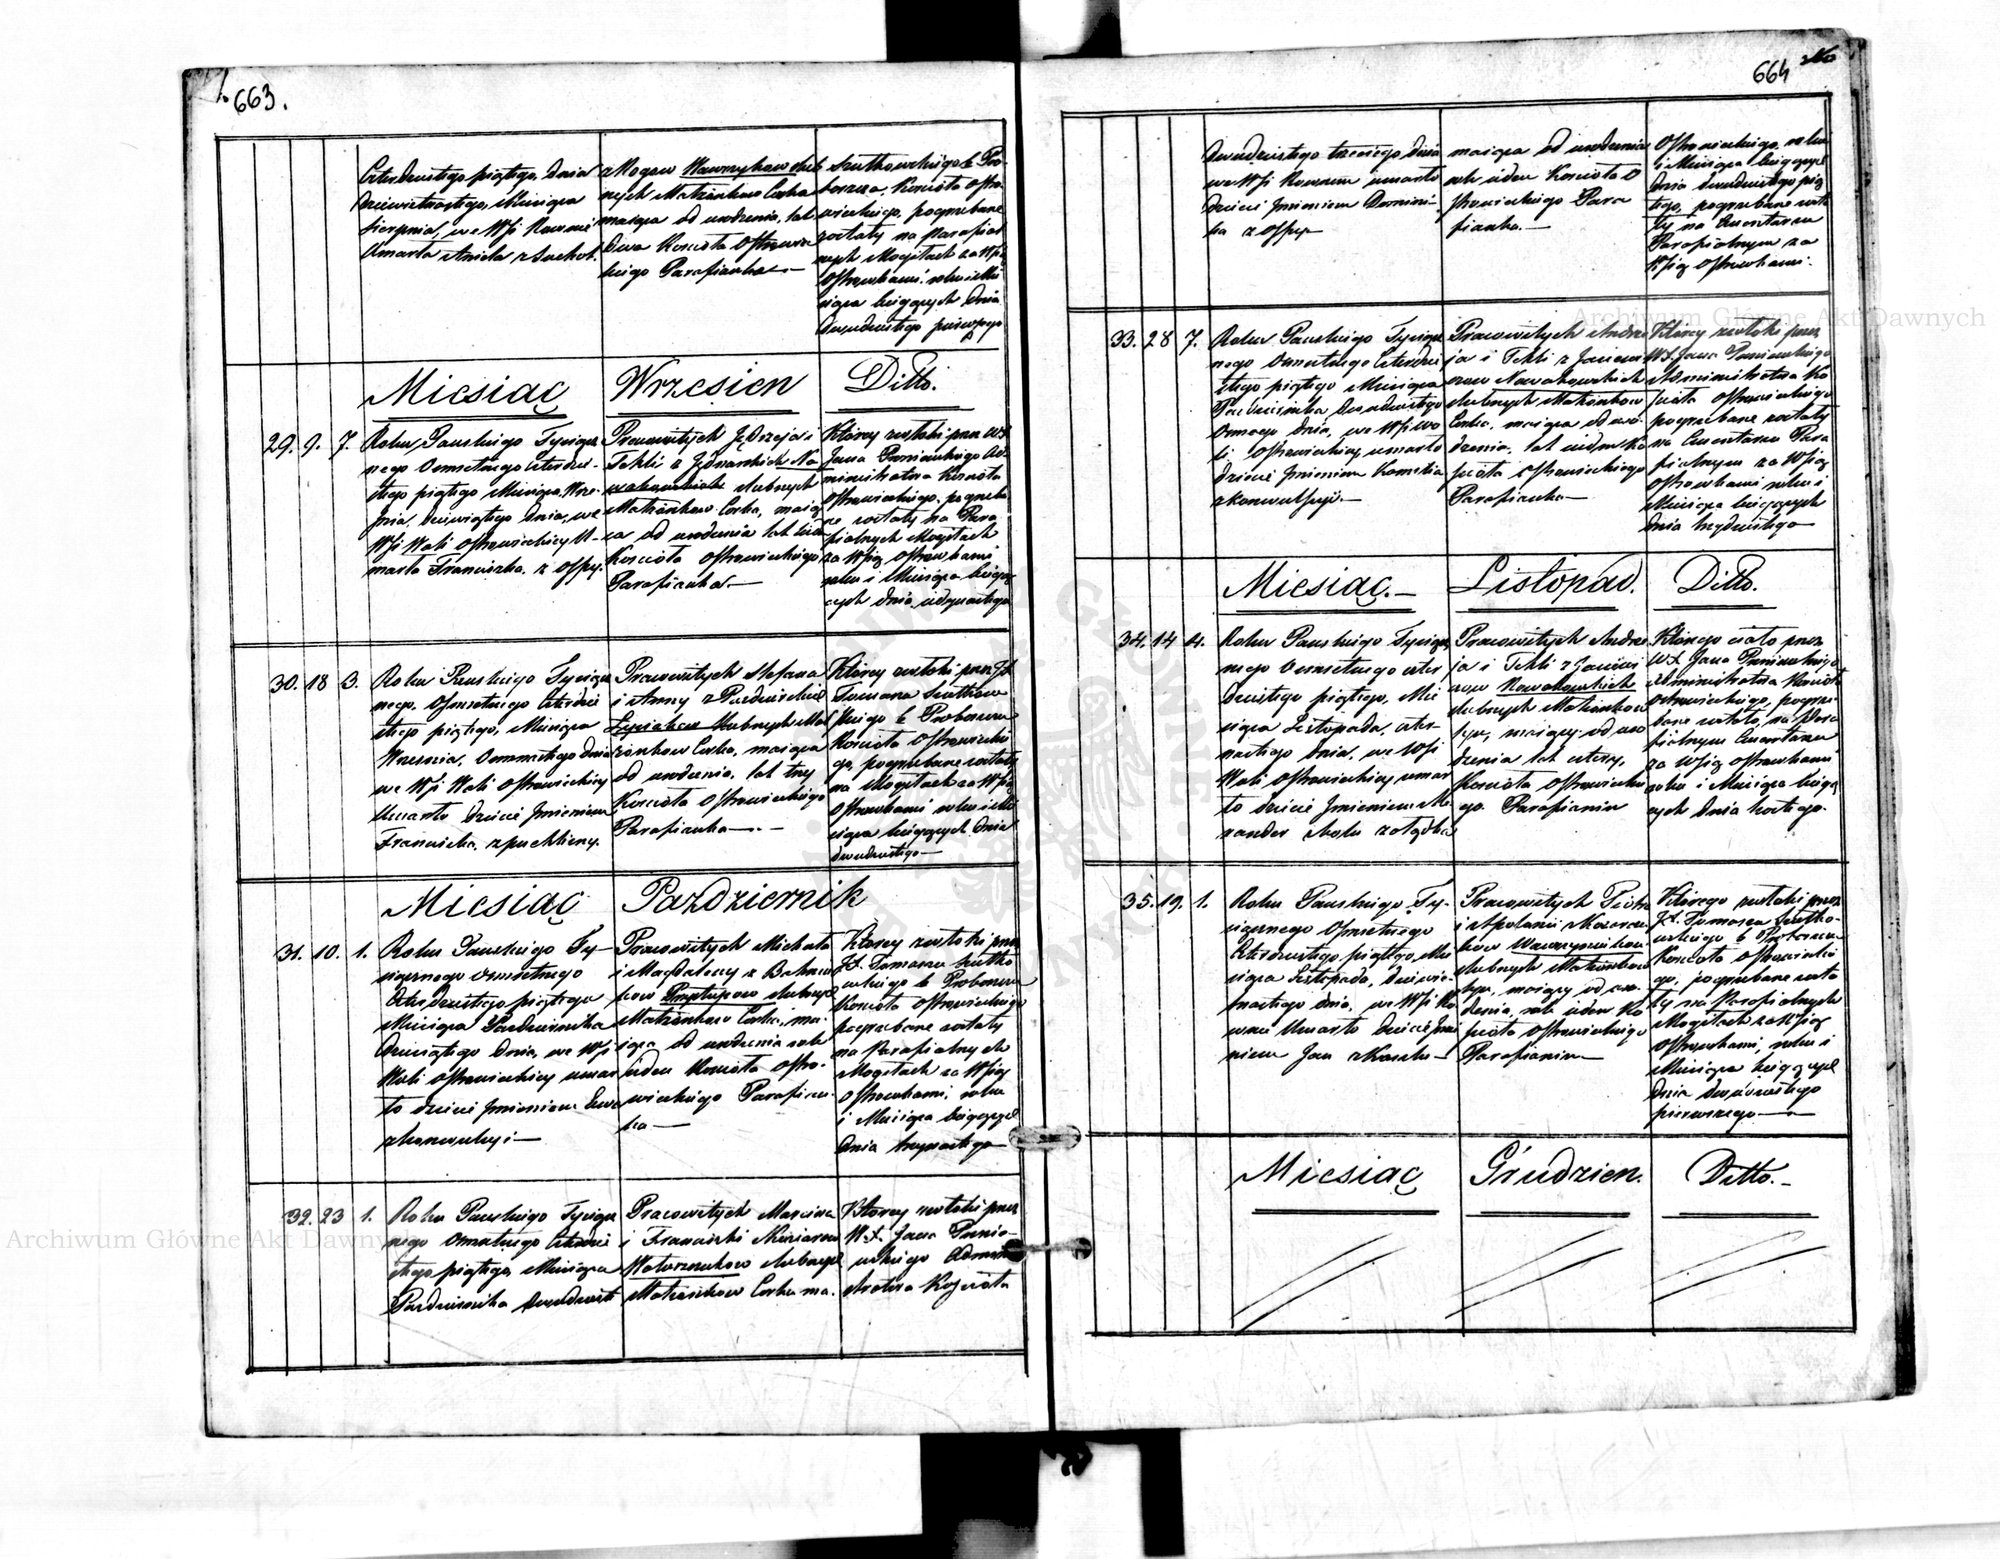 663.
Czterdziestego piątego, dnia
Dziewietnastego, Miesiąca
Sierpnia, we Wsi Rownie
Umarła Aniela z Suchot.
z Rogow Wawrzykow slub
nych Małżonkow Corka
maiąca od urodzenia, lat
Dwa Koscioła Ostrowie
ckiego Parafianka
Szutkowskiego b Pro-
boszcza Koscioła Ostro-
wieckiego, pogrzebane
zostały na Parafial
nych Mogiłach za Wsią
Ostrowkami, roku i Mie
siąca bieżących Dnia
Dwudziestego pierwszego
Miesiąc Wrzesien Ditto.
29. 9. 7.
Roku Pańskiego Tysiącz
nego Osmsetnego Czterdzie-
stego piątego Miesiąca, Wrze-
śnia, dziewiątego dnia, we
Wsi Woli Ostrowieckiey U-
marła Franciszka z Ospy.
Pracowitych Jędrzeja i
Tekli z Jednarskich No
wakowskich slubnych
Małżonkow Corka, maią
ca od urodzenia lat siedm
Koscioła Ostrowieckiego
Parafianka.
Ktorey zwłoki przez WX
Jana Paniewskiego Ad
ministratora Koscioła
Ostrowieckiego, pogrzeba
ne zostały na Para
fialnych Mogiłach
za Wsią Ostrowkami
roku i Miesiąca bieżą
cych dnia iedynastego
30. 18 3.
Roku Pańskiego Tysiącz
nego, Osmsetnego Czterdzie
stego piątego, Miesiąca
Wrzesnia, Osmnastego dnia
we Wsi Woli Ostrowieckiey
Umarło dziecie Jmieniem
Franciszka, z puchliny.
Pracowitych Stefana
i Anny z Pazdzierskich
slubnych Mał
żonkow Corka, maiąca
od urodzenia, lat trzy
Koscioła Ostrowieckiego
Parafianka
Ktorey zwłoki przez JX
Tomasza Szutkow
skiego b Proboszcza
Koscioła Ostrowieckie
go, pogrzebane zostały
na Mogiłach za Wsią
Ostrowkami roku i Mie
siąca bieżących dnia
dwudziestego
Miesiąc Pazdziernik
31. 10. 1.
Roku Pańskiego Ty-
siącznego Osmsetnego
Czterdziestego piątego
Miesiąca Pazdziernika
Dziesiątego Dnia, we Wsi
Woli Ostrowieckiey umar
ło dziecie Jmieniem Ewa
z konwulsyi
Pracowitych Michała
i Magdaleny z Bahniu
kow Przystupow slubnych
Małżonkow Corka, ma-
iąca od urodzenia rok
ieden Koscioła Ostro-
wieckiego Parafian-
ka
Ktorey zwłoki przez
JX. Tomasza Szutko
wskiego b Proboszcza
Koscioła Ostrowieckiego
pogrzebane zostały
na Parafialnych
Mogiłach za Wsią
Ostrowkami, roku
i Miesiąca bieżących
Dnia trzynastego
32. 23 1.
Roku Pańskiego Tysiącz
nego Osmsetnego Czterdzie
stego piątego, Miesiąca
Pazdziernika Dwudziest
Pracowitych Marcina
i Franciszki
slubnych
Małżonkow Corka ma.
Ktorey zwłoki przez
WX. Jana Panie-
wskiego Admini
stratora Koscioła
664
Dwudziestego trzeciego, dnia
we Wsi Rownem umarło
Dziecie Jmieniem Domini-
ka z Ospy
maiąca od urodzenia
rok ieden Koscioła O
strowieckiego Para
fianka.
Ostrowieckiego, roku
i Miesiąca bieżących
Dnia dwudziestego pią
tego, pogrzebane zosta
ły na Cmentarzu
Parafialnym za
Wsią Ostrowkami.
33. 28 7.
Roku Pańskiego Tysiącz
nego Osmsetnego Czterdzie
stego piątego Miesiąca
Pazdziernika Dwudziestego
Osmego dnia, we Wsi Wo
li Ostrowieckiey, umarło
dziecie Jmieniem Kornelia
z konwulsyi.
Pracowitych Andrze
ja i Tekli z Janiew
szow Nowakowskich
slubnych Małżonkow
Corka, maiąca od uro
dzenia, lat siedm Ko
scioła Ostrowieckiego
Parafianka
Ktorey zwłoki przez
WX. Jana Paniewskiego
Administratora Ko
scioła Ostrowieckiego
pogrzebane zostały
na Cmentarzu Para
fialnym za Wsią
Ostrowkami roku i
Miesiąca bieżących
Dnia trzydziestego
Miesiąc. Listopad. Ditto.
34. 14 4.
Roku Pańskiego Tysiącz
nego Osmsetnego czter
dziestego piątego, Mie
siąca Listopada, czter-
nastego dnia, we Wsi
Woli Ostrowieckiey umar
ło dziecie Jmieniem Ale
xander bolu żołądka
Pracowitych Andrze
ja i Tekli z Janiew
szow Nowakowskich
slubnych Małżonkow
Syn, maiący od uro
dzenia lat cztery,
Koscioła Ostrowiecki
ego Parafianin
Ktorego ciało przez
WX. Jana Paniewskiego
Administratora Koscioła
Ostrowieckiego, pogrze
bane zostało, na Para
fialnym Cmentarzu
za Wsią Ostrowkami
roku i Miesiąca bieżą
cych dnia szostego.
35. 19. 1.
Roku Pańskiego Ty-
siącznego Osmsetnego
Czterdziestego piątego, Mie
siąca Listopada, dziewię-
tnastego dnia, we Wsi Ro
wnie Umarło dziecie Jmie
niem Jan z Kaszlu
Pracowitych Piotra
i Apolonii
slubnych Małżonkow
Syn, maiący od uro
dzenia, rok ieden Ko
scioła Ostrowieckiego
Parafianin
Ktorego zwłoki przez
JX. Tomasza Szutko-
wskiego b Proboszcza
Koscioła Ostrowieckie
go, pogrzebane zosta
ły na Parafialnych
Mogiłach za Wsią
Ostrowkami, roku i
Miesiąca bieżących
Dnia dwudziestego
pierwszego
Miesiąc Grudzien. Ditto.
Archiwum Główne Akt Dawnych
Archiwum Główne Akt Dawnych